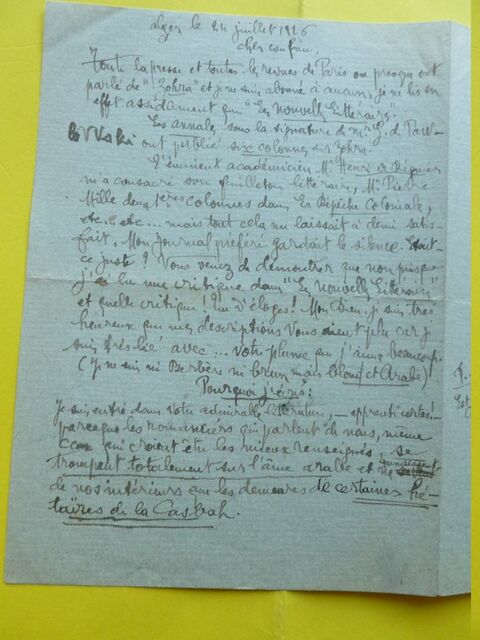 Alger le 24 juillet 1926
Cher confrère.
Toute la presse et toutes les revues de Paris ou presque ont
parlé de "Zohra" et je ne suis abonné à aucune, je ne lis en
effet assidument que "Les Nouvelles Littéraires.
Les annales sous la signature de Mr G. d Paw-
lowski ont publié six colonnes sur Zohra.
L'éminent académicien M. Henri de Régnier
m'a consacré son feuilleton littéraire, M. Pierre
Mille deux 1ères colonnes dans La Dépêche Coloniale,
etc.. etc... mais tout cela me laissait à demi satis-
fait. Mon journal préféré gardait le silence. Etait
ce juste? Vous venez de démontrer que non puisque
j'ai lu une critique dans "Les Nouvelles Littéraires"
et quelle critique! Que d'éloges! Mon Dieu, je suis très
heureux que mes descriptions vous aient plu car je
suis très lié avec... votre plume que j'aime beaucoup.
(Je ne suis ni Berbère ni brun mais blond et Arabe)
Pourquoi j'écris:
Je suis entré dans votre admirable littérature, — apprenti certes!—
parceque les romanciers qui parlent de nous, même
ceux qui croient être les mieux renseignés, se
trompent totalement sur l'âme arabe et ne connaissent
de nos intérieurs que les demeures de certaines hé-
taïres de la Casbah.